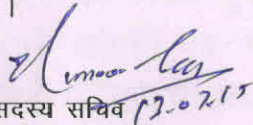 सदस्य सचिव 13.07.15